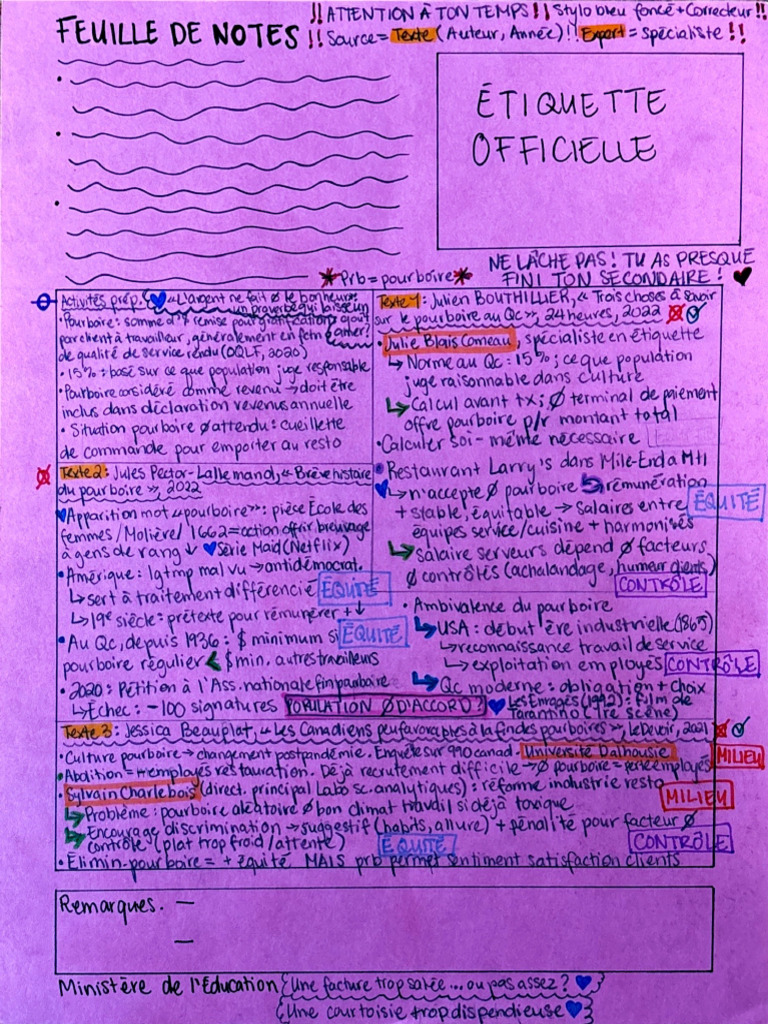 !! ATTENTION À TON TEMPS !! Stylo bleu foncé + Correcteur !!
FEUILLE DE NOTES
!! Source = Texte (Auteur, Année) !! Expert = spécialiste !!
ÉTIQUETTE
OFFICIELLE
NE LÂCHE PAS ! TU AS PRESQUE
FINI TON SECONDAIRE ! ♥
* Prb = pourboire *
Activités prép. « L'argent ne fait Ø le bonheur »:
un proverbe qui laisse un
goût
amer!
• Pourboire : somme d'$ remise pour gratification
par client à travailleur, généralement en fctn
de qualité de service rendu (OQLF, 2020)
• 15% : basé sur ce que population juge responsable
• Pourboire considéré comme revenu → doit être
inclus dans déclaration revenus annuelle
• Situation pourboire Ø attendu : cueillette
de commande pour emporter au resto
Texte 1 : Julien BOUTHILLIER, « Trois choses à savoir
sur le pourboire au Qc », 24 heures, 2022
• Julie Blais Comeau, spécialiste en étiquette
↳ Norme au Qc : 15% ; ce que population
juge raisonnable dans culture
↳ Calcul avant tx ; Ø terminal de paiement
offre pourboire p/r montant total
• Calculer soi-même nécessaire
• Restaurant Larry's dans Mile-End à Mtl
↳ n'accepte Ø pourboire rémunération
+ stable, équitable → salaires entre ÉQUITÉ
équipes service/cuisine + harmonisés
↳ salaire serveurs dépend Ø facteurs
Ø contrôlés (achalandage, humeur clients)
CONTRÔLE
Texte 2 : Jules Pector-Lallemand, « Brève histoire
du pourboire », 2022
♥ Apparition mot « pourboire » : pièse École des
femmes/Molière/1662 = action offrir breuvage
à gens de rang ↓ ♥ Série Maid (Netflix)
• Amérique : lgtmp mal vu → antidémocrat.
↳ sert à traitement différencié ÉQUITÉ
↳ 19e siècle : prétexte pour rémunérer + ↓
• Au Qc, depuis 1936 : $ minimum si ÉQUITÉ
pourboire régulier < $ min. autres travailleurs
• 2020 : Pétition à l'Ass. nationale fin pourboire
↳ Échec : -100 signatures POPULATION Ø D'ACCORD ?
• Ambivalence du pourboire
↳ USA : début ère industrielle (1865)
↳ reconnaissance travail de service
↳ exploitation employés CONTRÔLE
↳ Qc moderne : obligation + choix
♥ Les Enragés (1992) : film de
Tarantino (1re scène)
Texte 3 : Jessica Beauplat, « Les Canadiens peu favorables à la fin des pourboires », Le Devoir, 2021
• Culture pourboire → changement postpandémie. Enquête sur 990 canad. Université Dalhousie
• Abolition = + employés restauration. Déjà recrutement difficile → Ø pourboire = perte employés MILIEU
• Sylvain Charlebois (direct. principal Labo sc. analytiques) : réforme industrie resto MILIEU
↳ Problème : pourboire aléatoire Ø bon climat travail si déjà toxique
↳ Encourage discrimination → suggestif (habits, allure) + pénalité pour facteur Ø
contrôle (plat trop froid/attente) ÉQUITÉ CONTRÔLE
• Élimin. pourboire = + équité MAIS prb permet sentiment satisfaction clients
Remarques. —
—
Ministère de l'Éducation
Une facture trop salée... ou pas assez ? ♥
Une courtoisie trop dispendieuse ♥